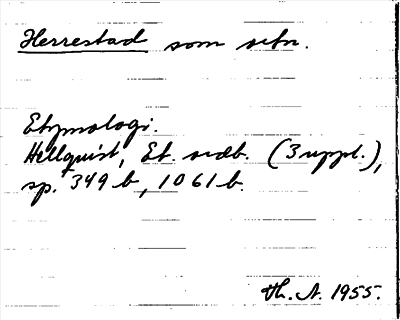 Herrestad som ortn.
Etymologi.
Hellquist, Et. ordb. (3 uppl.),
sp. 349 b, 1061 b.
Th. A. 1955.